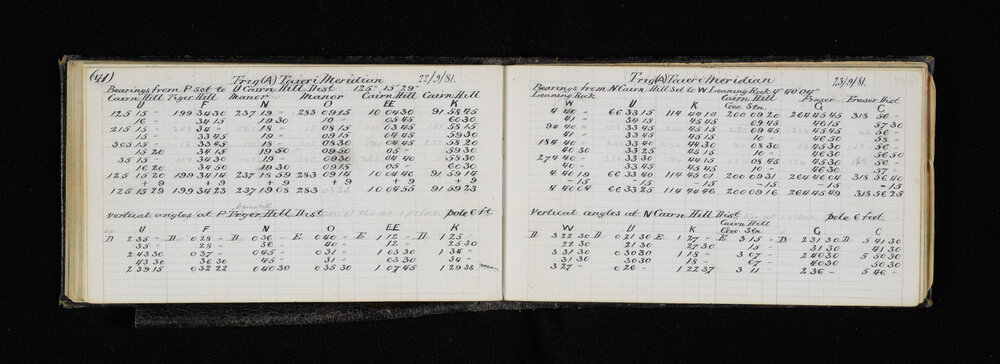 (41)
Trig (A) Taieri Meridian 22/9/81.
Bearings from P set to U Cairn Hill Dist 125° 15' 29"
Cairn Hill Tiger Hill Manor Manor Cairn Hill Cairn Hill
U F N O EE K
125 15 - 199 34 30 237 19 - 283 09 15 10 04 30 91 58 45
16 - 34 15 19 30 10 - 05 45 60 30
215 15 - 34 - 18 - 08 15 03 45 58 15
15 - 33 45 19 - 09 15 04 45 59 30
305 15 - 33 45 18 - 08 30 04 45 58 20
15 20 34 15 19 50 09 50 05 - 59 30
35 15 - 34 30 19 - 09 30 04 40 58 30
16 20 34 50 19 30 09 15 05 - 60 30
125 15 20 199 34 14 237 18 59 283 09 14 10 04 46 91 59 14
+ 9 + 9 + 9 + 9 + 9 + 9
125 15 29 199 34 23 237 19 08 283 10 04 55 91 59 23
Vertical angles at P Tiger Hill Dist pole 6 ft.
U F N O EE K
D 2 35 - D 0 28 - D 0 36 - E 0 40 - E 1 12 - D 1 25 -
35 - 28 - 36 - 40 - 12 - 25 30
2 43 30 0 37 - 0 45 - 0 31 - 1 03 30 1 34 -
43 30 36 30 45 - 31 - 03 30 34 -
2 39 15 0 32 22 0 40 30 0 35 30 1 07 45 1 29 38 mean
Trig (A) Taieri Meridian 23/9/81.
Bearings from N Cairn Hill Set to W Leaning Rock 4° 40' 04"
Leaning Rock Cairn Hill Fraser Fraser Dist
W U K Cow. Stn. G C
4 40 - 66 33 15 114 44 10 200 09 20 264 45 45 318 56 -
41 - 34 15 45 45 09 45 46 15 57 30
94 40 - 33 15 45 15 09 45 45 45 56 -
40 - 33 45 45 15 10 - 46 50 58 -
184 40 - 33 40 44 30 08 30 45 30 56 -
40 30 33 25 45 15 10 - 46 30 56 50
274 40 - 33 30 44 15 08 45 45 30 56 -
40 - 33 45 45 45 10 - 46 30 57 -
4 40 19 66 33 40 114 45 01 200 09 31 264 46 04 318 56 40
- 15 - 15 - 15 - 15 - 15 - 15
4 40 04 66 33 25 114 44 46 200 09 16 264 45 49 318 56 25
Vertical angles at N Cairn Hill Dist pole 6 feet.
Cairn Hill
W U K Cow Stn. G C
D 3 22 30 D 0 21 30 E 1 27 - E 3 15 - D 2 31 30 D 5 41 30
22 30 21 30 27 30 15 - 31 30 41 30
3 31 30 0 30 30 1 18 - 3 07 - 2 40 30 5 50 30
31 30 30 30 18 - 07 - 40 30 50 30
3 27 - 0 26 - 1 22 37 3 11 2 36 - 5 46 -